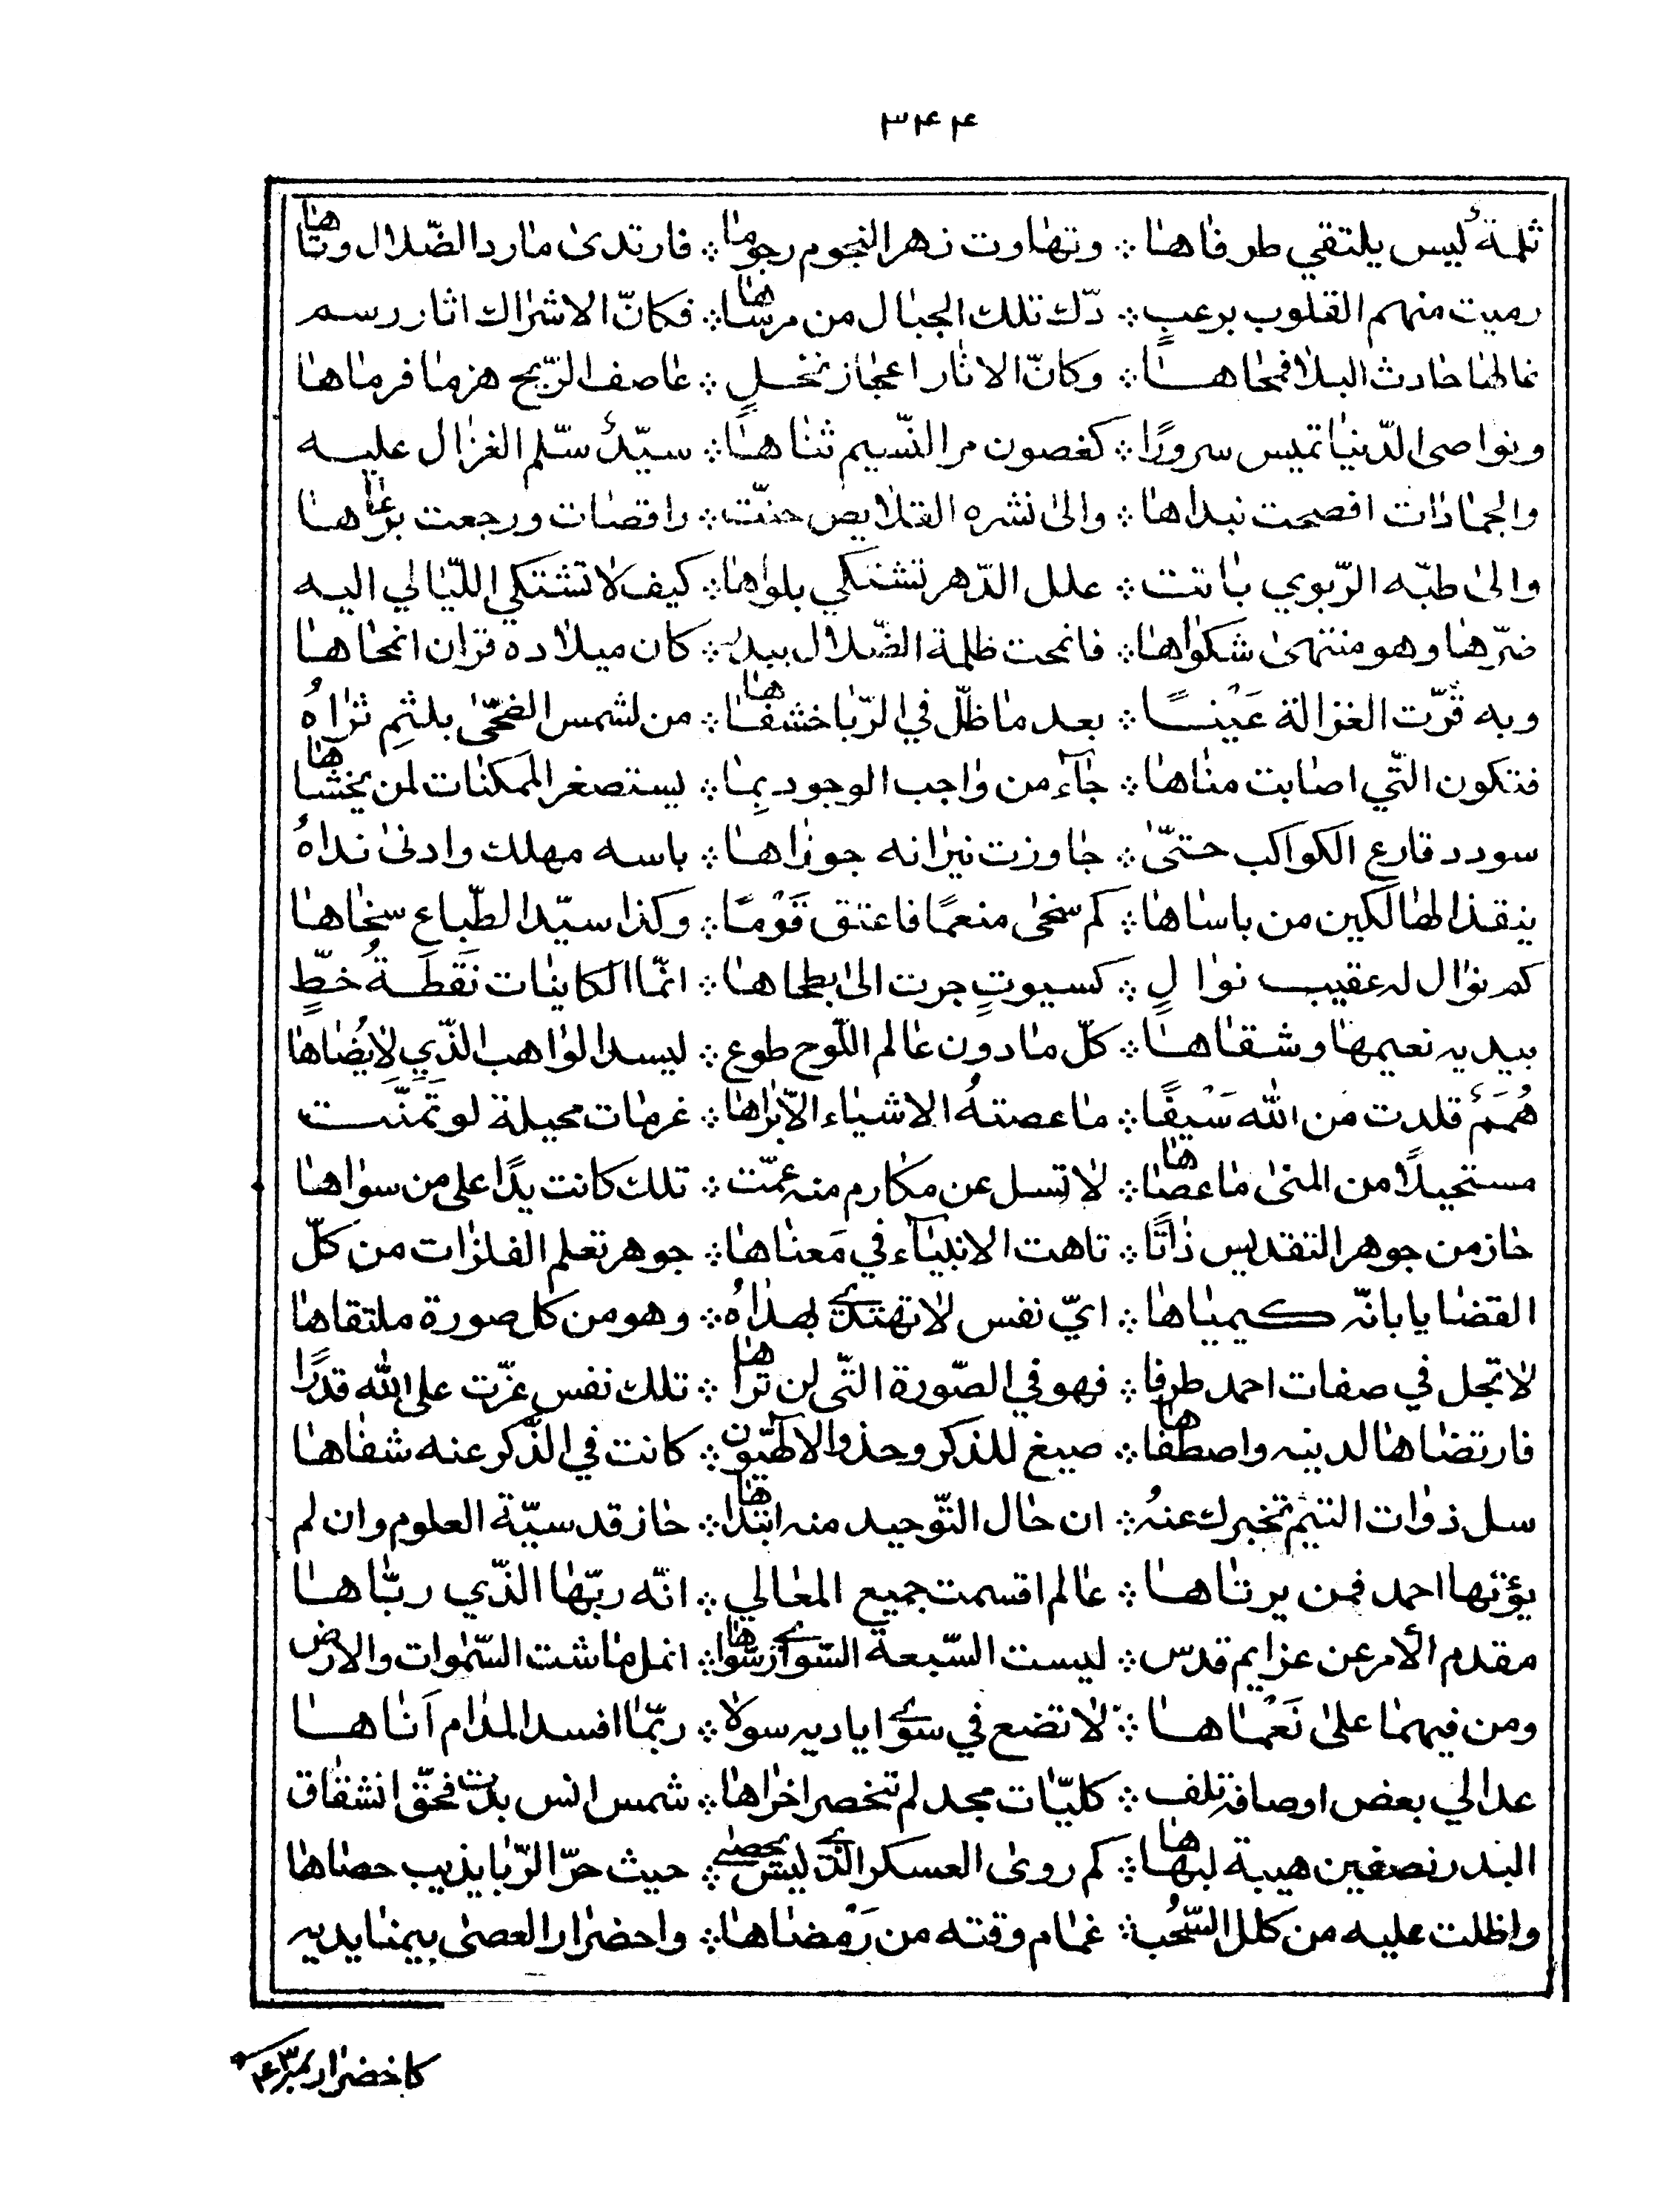 ٣٤٤
ثلمة ليس يلتقي طرفاها ⁘ وتهاوت زهر النجوم رجوما ⁘ فارتدى مارد الضّلال وتاها
رميت منهم القلوب برعبٍ ⁘ دّك تلك الجبال من مرساها ⁘ فكانّ الاشراك اثار رسم
غالها حادث البلا فمحاها ⁘ وكانّ الاثار اعجاز نخلٍ ⁘ عاصف الرّيح هزما فرماها
ونواصى الدّنيا تميس سرورًا ⁘ كغصون مر النّسيم ثناها ⁘ سيّدٌ سلّم الغزال عليه
والجمادات افصحت نبداها ⁘ والى نشره القلايص حنّت ⁘ راقصات ورجعت برغاها
والى طبّه الرّبوي باتت ⁘ علل الدّهر تشتكي بلواها ⁘ كيف لا تشتكي اللّيالي اليه
ضرّها وهو منتهى شكواها ⁘ فانمحت ظلمة الضّلال ببدر ⁘ كان ميلاده قران انمحاها
وبه قرّت الغزالة عَيْنًا ⁘ بعد ما ظلّ في الرّبا خشفاها ⁘ من لشمس الضّحى بلثمِ ثراهُ
فتكون التّي اصابت مناها ⁘ جآء من واجب الوجود بِما ⁘ يستصغر الممكنات لمن يخشاها
سودد قارع الكواكب حتّى ⁘ جاوزت نيرانه جوزاها ⁘ باسه مهلك وادنى نداهُ
ينقذ الهالكين من باساها ⁘ كم سخى منعمًا فاعتق قَوْمًا ⁘ وكذا سيّد الطّباع سخاها
كم نوال له عقيب نوالٍ ⁘ كسيوتٍ جرت الى بطحاها ⁘ انّما الكاينات نَقطَةُ خطٍّ
بيديه نعيمها وشقاها ⁘ كلّ ما دون عالم اللّوح طوع ⁘ ليد الواهب الذّي لا يُضاها
هُمَمٌ قلدت من الله سَيْفًا ⁘ ما عصتهُ الاشياء الّا براها ⁘ غرمات محيلة لو تَمَنَّت
مستحيلًا من المنى ما عصاها ⁘ لا تسل عن مكارم منه عمّت ⁘ تلك كانت يدًا على من سواها
حاز من جوهر التقديس ذاتًا ⁘ تاهت الانبيآء في مَعناها ⁘ جوهر تعلم الفلزات من كلّ
القضايا بانّه كيمياها ⁘ ايّ نفس لا تهتدي بهداهُ ⁘ وهو من كل صورة ملتقاها
لا تجل في صفات احمد طرفا ⁘ فهو في الصّورة التّى لن تراها ⁘ تلك نفس عزّت على الله قدرًا
فارتضاها لدينه واصطفاها ⁘ صيغ للذكر وحذ والالهيّون ⁘ كانت في الذّكر عنه شفاها
سل ذوات التميم تخبرك عنهُ ⁘ ان حال التّوحيد منه ابتداها ⁘ حاز قدسيّة العلوم وان لم
يؤتها احمد فمن يرتاها ⁘ عالم اقسمت جميع المعالي ⁘ انّه ربّها الذّي ربّاها
مقدم الأمر عن عزايم قدس ⁘ ليست السّبعة السّواري سواها ⁘ انمل ماشت السّموات والارض
ومن فيهما على نَعْماها ⁘ لا تضع في سوى اياديه سولا ⁘ ربّما افسد المدام آناها
عد الي بعض اوصافه تلف ⁘ كليّات مجد لم تنحصر اخراها ⁘ شمس انس بدت فحقّ انشقاق
البدر نصفين هيبة لبهاها ⁘ كم روى العسكر الذي ليس يحصى ⁘ حيث حرّ الرّبا يذيب حصاها
واظلت عليه من كلل السّحُب ⁘ غمام وقته من رَمْضاها ⁘ واخضرار العصى بيمنا يديه
كاخضرار